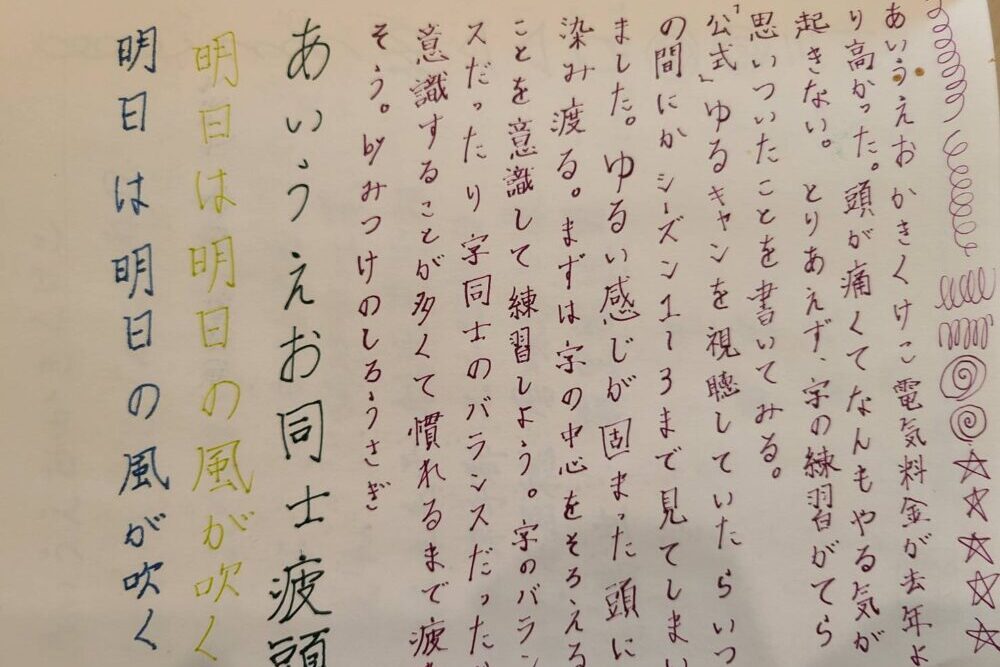 あいうえお かきくけこ 電気料金が去年よ
り高かった。頭が痛くてなんもやる気が
起きない。とりあえず、字の練習がてら
思いついたことを書いてみる。
「公式」ゆるキャンを視聴していたらいつ
の間にかシーズン1~3まで見てしまい
ました。ゆるい感じが固まった頭に
染み渡る。まずは字の中心をそろえる
ことを意識して練習しよう。字のバラン
スだったり字同士のバランスだった
意識することが多くて慣れるまで疲
そう。byみつけのしろうさぎ
あいうえお同士疲頭
明日は明日の風が吹く
明日は明日の風が吹く